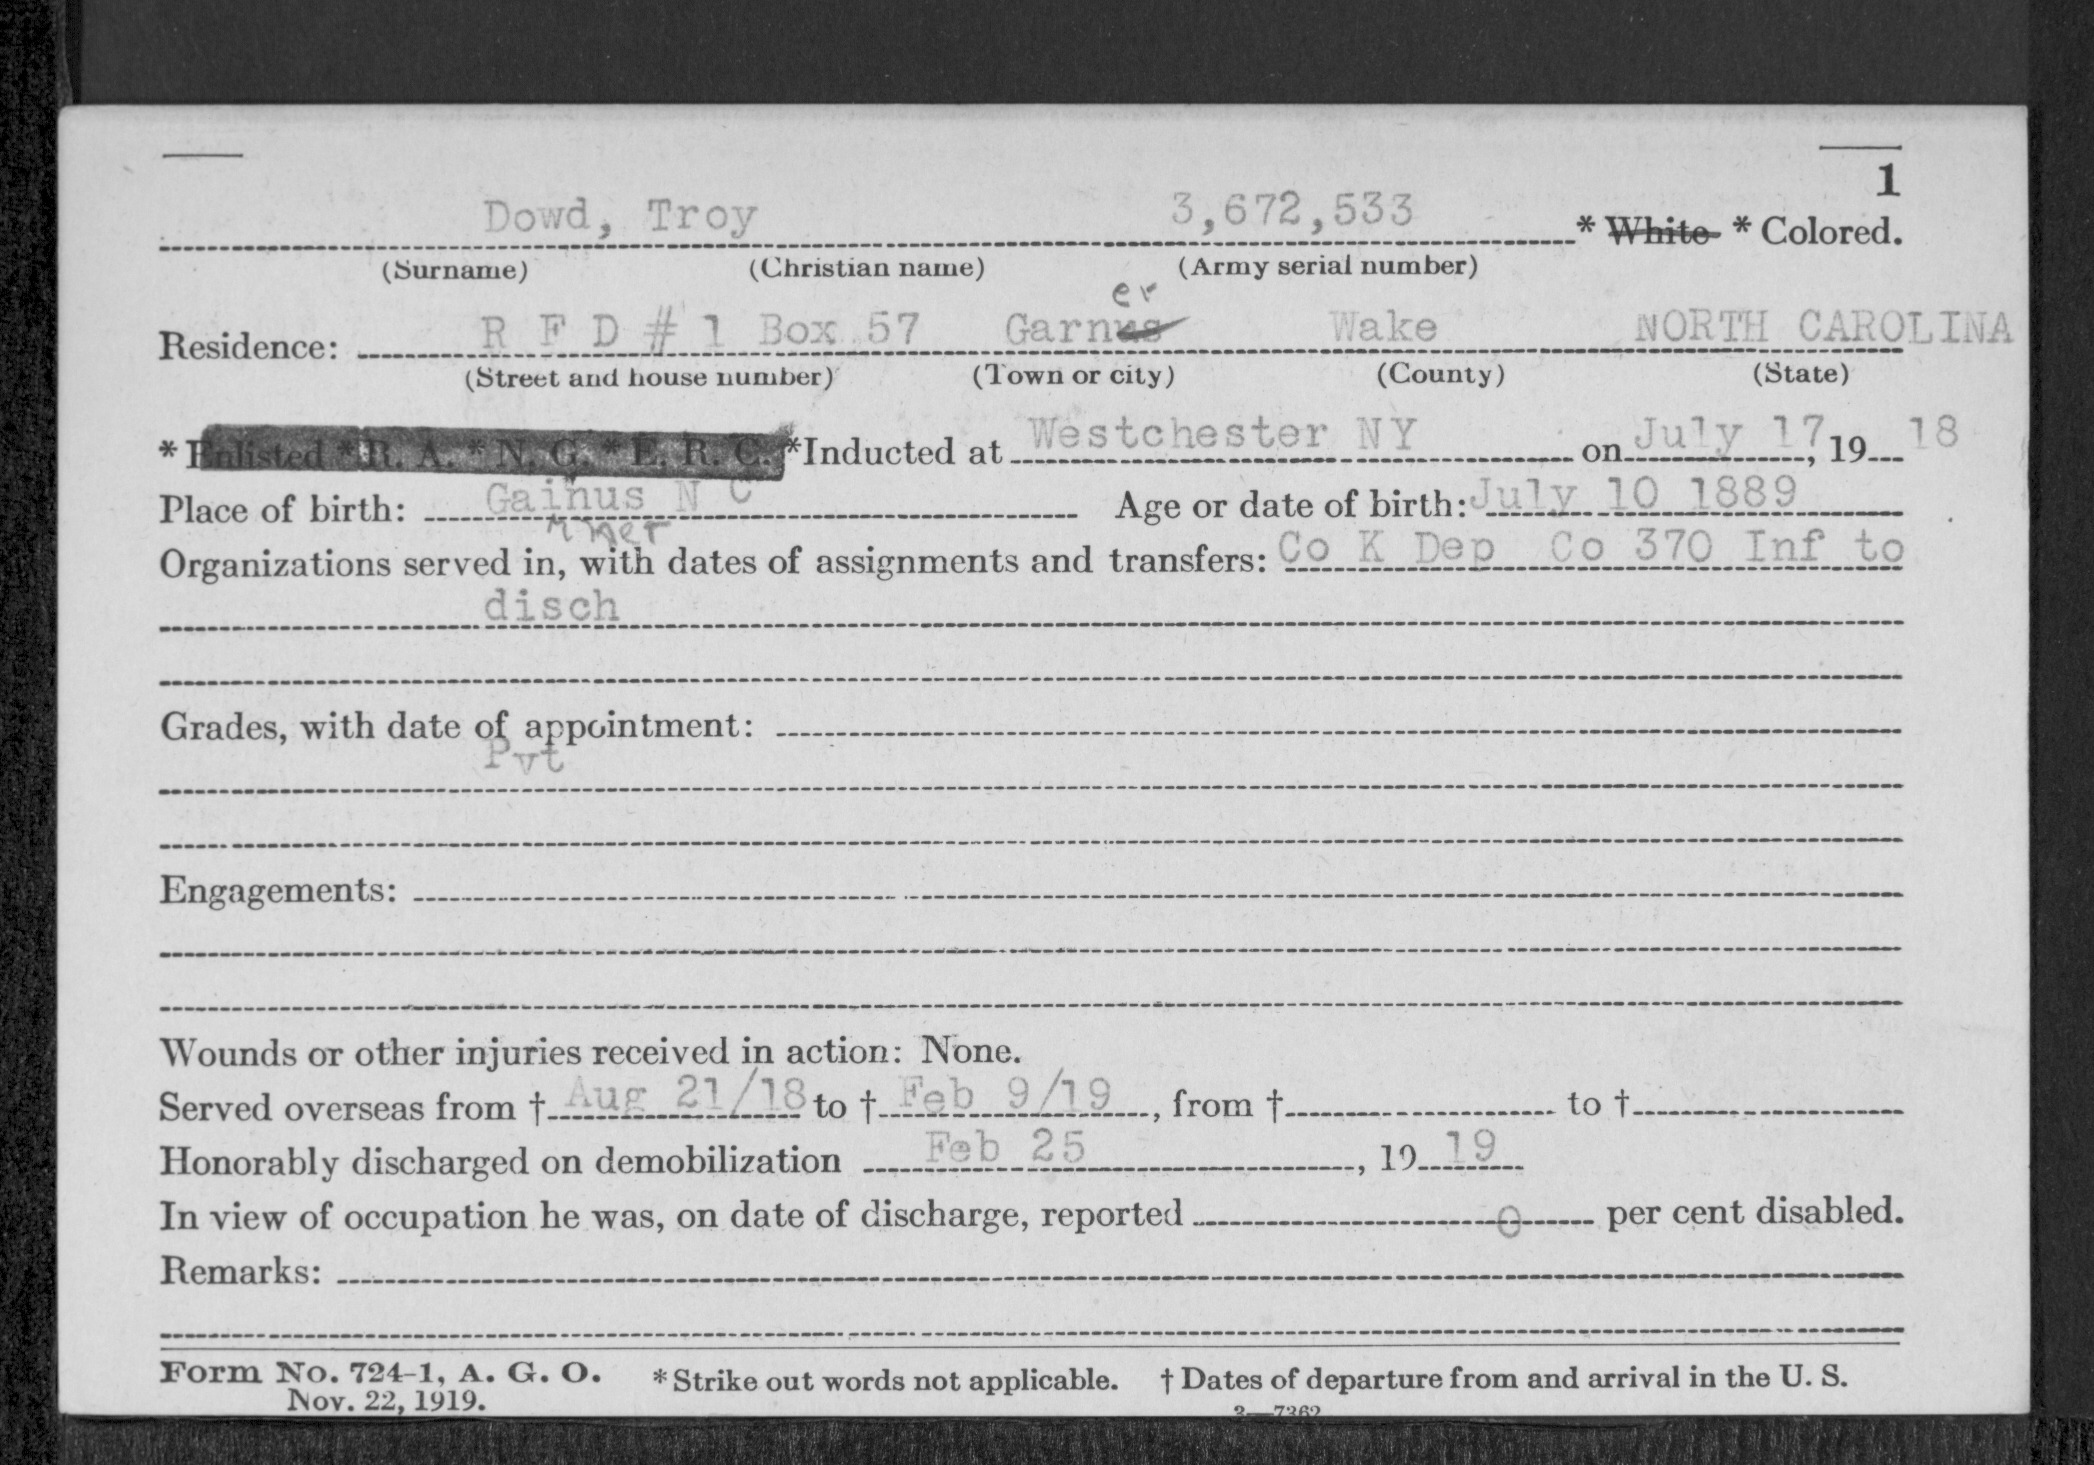 1
Dowd, Troy 3,672,533 * White * Colored.
(Surname) (Christian name) (Army serial number)
er
Residence: R F D # 1 Box 57 Garnus Wake NORTH CAROLINA
(Street and house number) (Town or city) (County) (State)
* Enlisted * R. A. * N. G. * E. R. C. *Inducted at Westchester NY on July 17, 19 18
Place of birth: Gainus N C Age or date of birth: July 10 1889
rner
Organizations served in, with dates of assignments and transfers: Co K Dep Co 370 Inf to
disch
Grades, with date of appointment:
Pvt
Engagements:
Wounds or other injuries received in action: None.
Served overseas from † Aug 21/18 to † Feb 9/19, from † to †
Honorably discharged on demobilization Feb 25, 19 19
In view of occupation he was, on date of discharge, reported 0 per cent disabled.
Remarks:
Form No. 724-1, A. G. O. * Strike out words not applicable. † Dates of departure from and arrival in the U. S.
Nov. 22, 1919.
3—7362